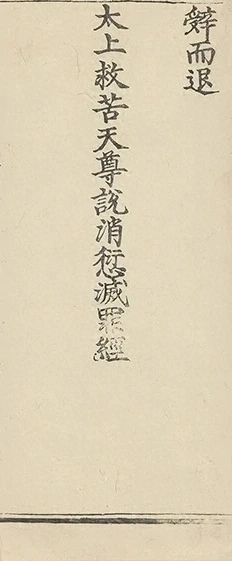 辤而退
太上救苦天尊說消愆滅罪經